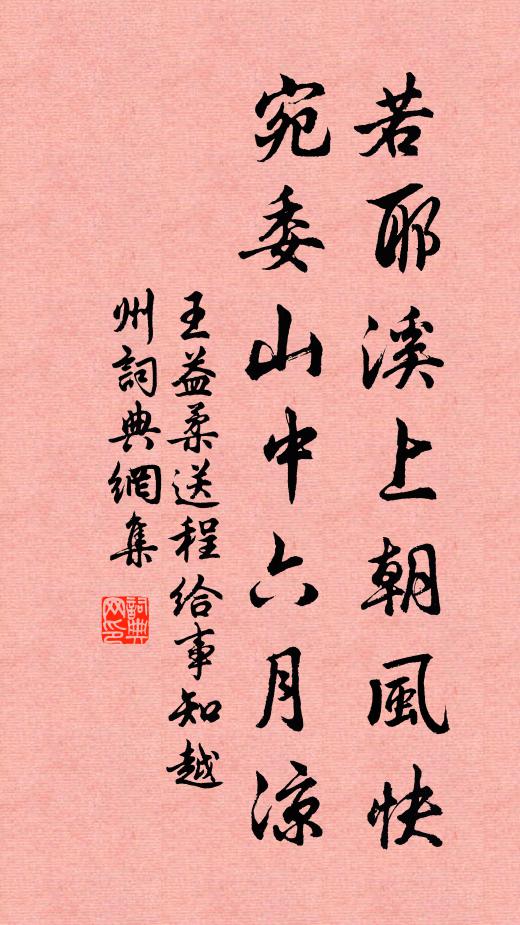 若耶溪上朝風快
宛委山中六月涼
王益柔送程給事知越
州詞典網集
詞典網印